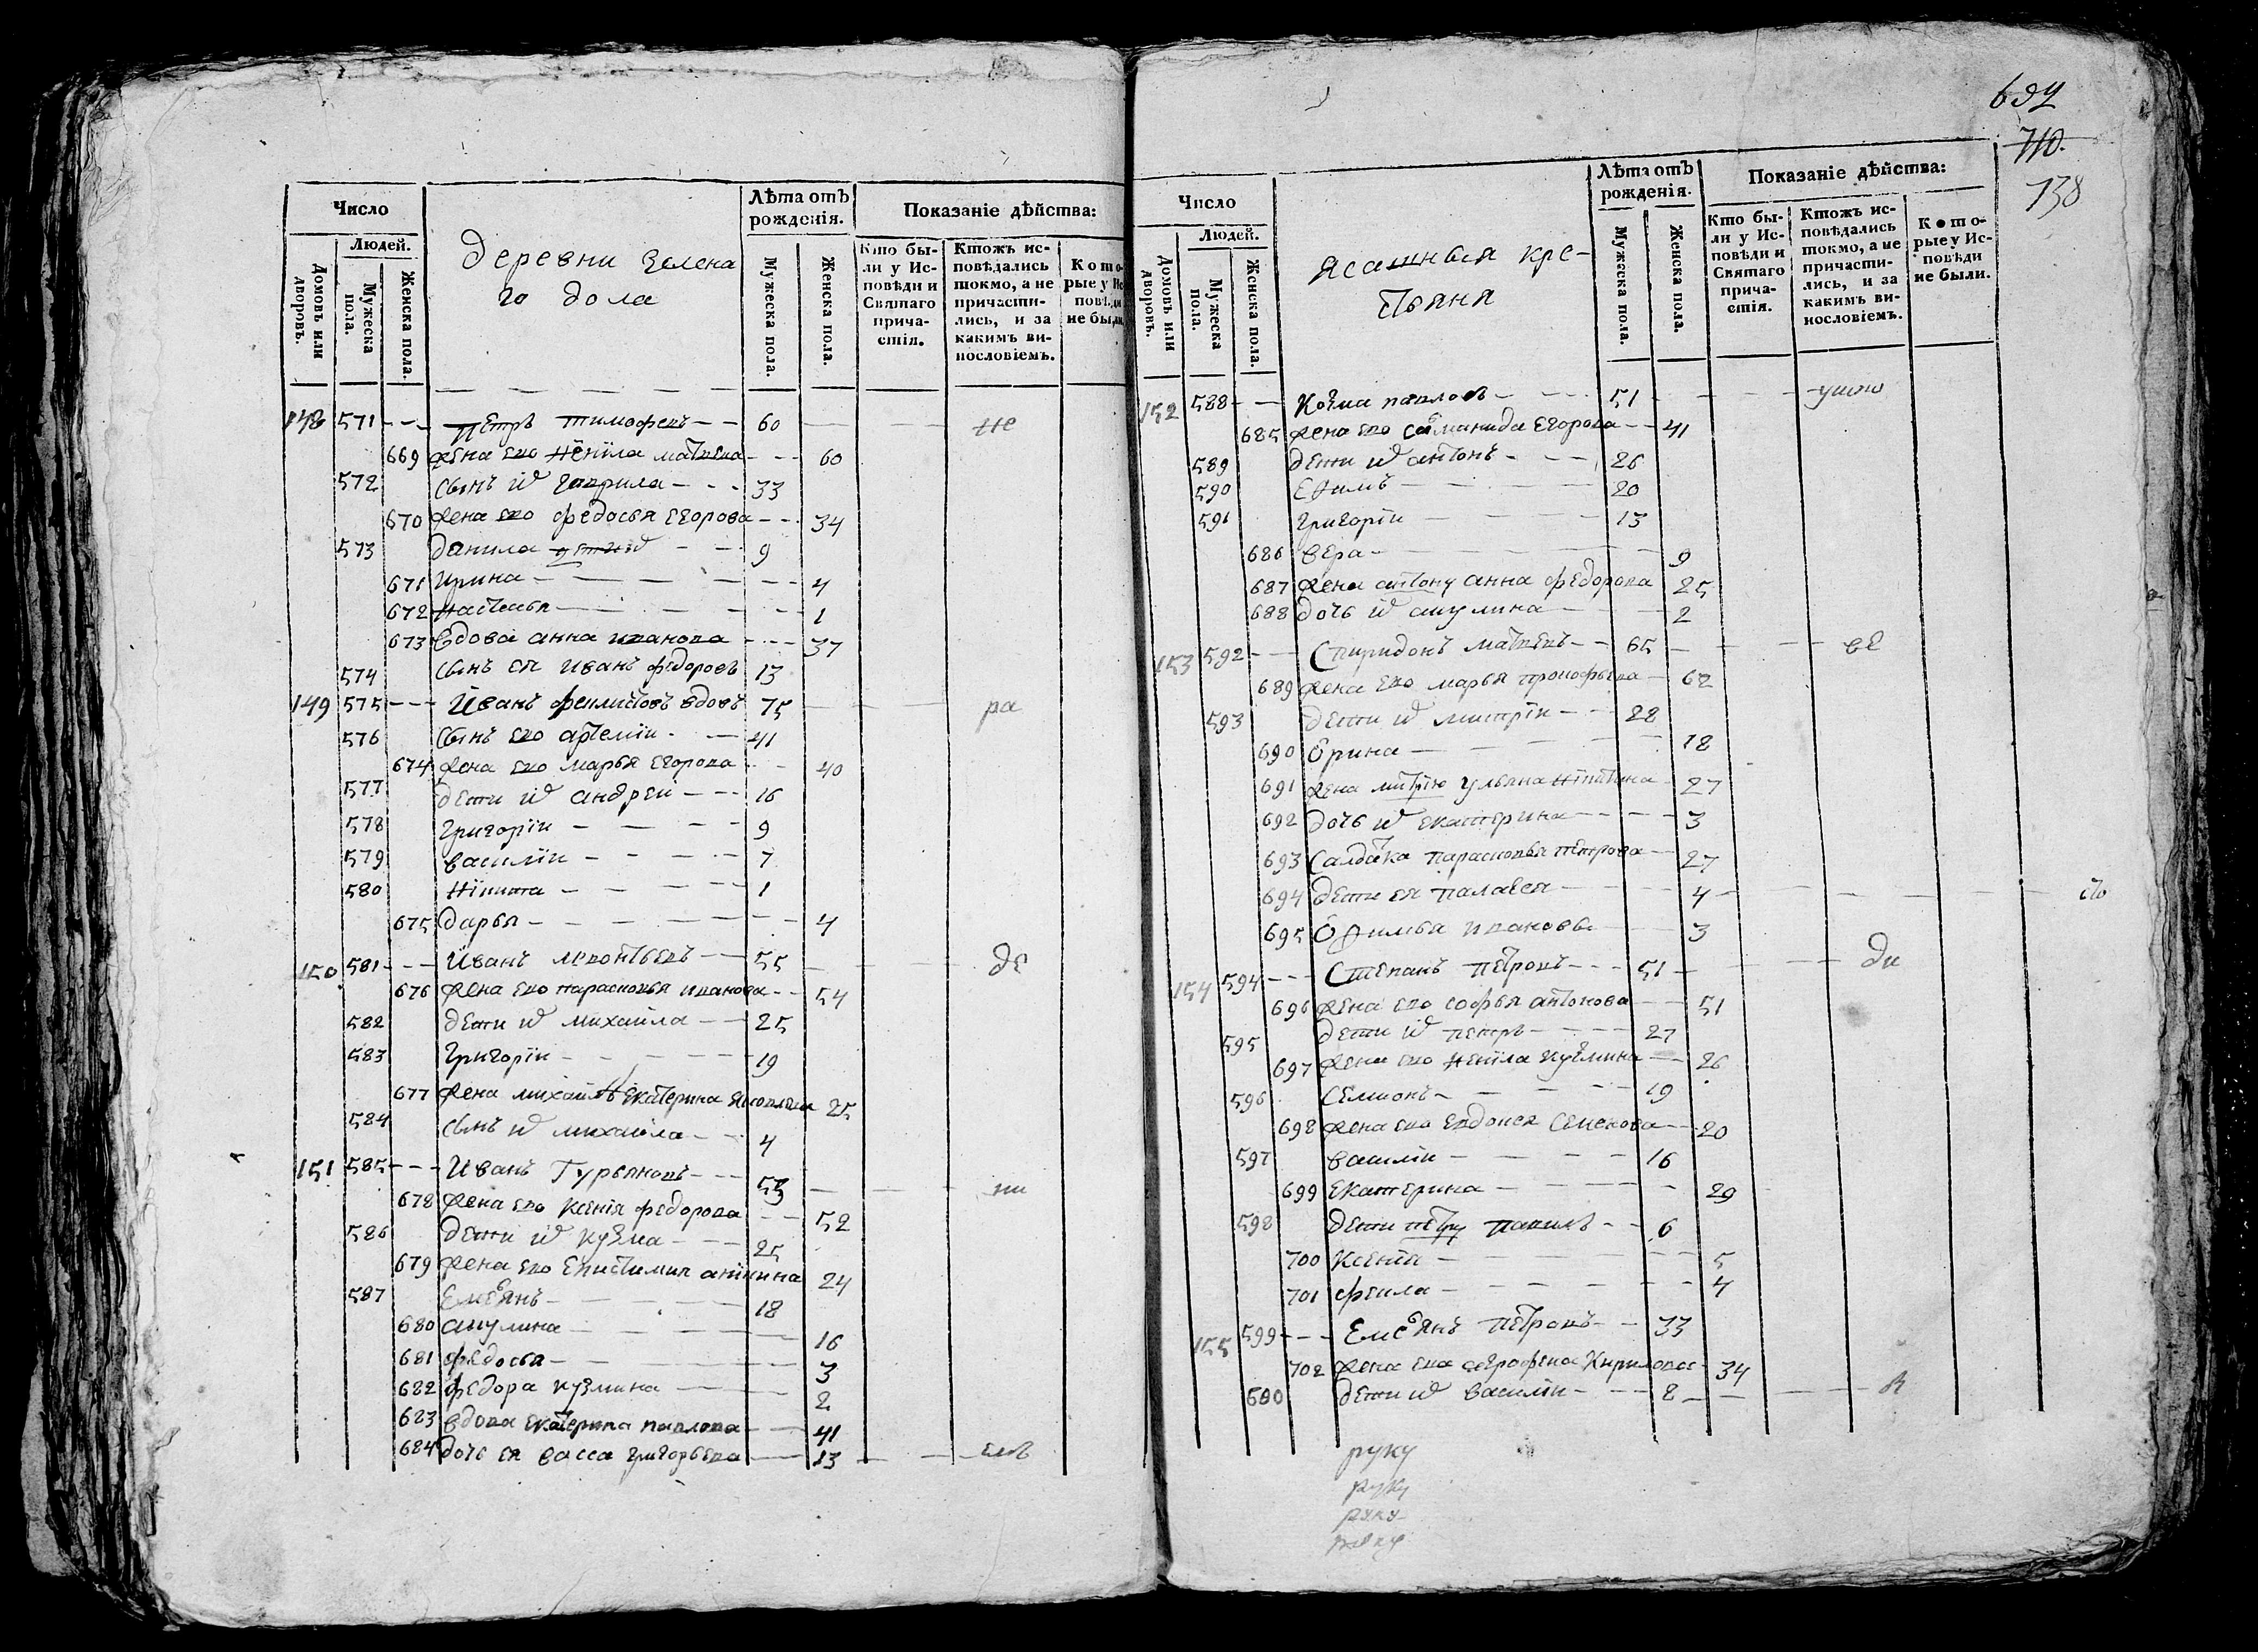 692
710.
738
Число
Людей.
Домовъ или дворовъ.
Мужеска пола.
Женска пола.
деревни Зелена
го дола
Лѣта отъ рожденія.
Мужеска пола.
Женска пола.
Показаніе дѣйства:
Кто бы-
ли у Ис-
повѣди и
Святаго
прича-
стія.
Ктожъ ис-
повѣдались
токмо, а не
причасти-
лись, и за
какимъ ви-
нословіемъ.
Кото-
рые у Ис-
повѣди
не были.
148 571 - - - Петръ тимофеевъ - - 60 не
669 жена ево Ненила матвева - - 60
572 сынъ их гаврила - - - 33
670 жена ево федосья егорова - - 34
573 данила дети их - - 9
671 ирина - - - 4
672 настасья - - - 1
673 вдова анна иванова - - - 37
574 сынъ ея иванъ федоровъ 13
149 575 - - - Иванъ феклистовъ вдовъ 75 ра
576 сынъ ево артемiи - - 41
674 жена ево марья егорова - - 40
577 дети их андреи - - - 16
578 григорiи - - - 9
579 василiи - - - 7
580 Никита - - - 1
675 дарья - - - 4
150 581 - - - Иванъ леонтьевъ - - 55 де
676 жена ево парасковья иванова - - 54
582 дети их михаила - - 25
583 григорiи - - - 19
677 жена михаилъ Екатерина 25
584 сынъ их михаила - - 4
151 585 - - - Иванъ Гурьяновъ - - - 53 ни
678 жена ево ксенiя федорова - - 52
586 дети их кузма - - - 25
679 жена ево Епистимия аникина 24
587 Емельянъ - - - 18
680 акулина - - - 16
681 федосья - - - 3
682 федора кузмина - - - 2
683 вдова екатерина павлова - - 41
684 дочь ея васса григорьева - - 13 - - емъ
Число
Людей.
Домовъ или дворовъ.
Мужеска пола.
Женска пола.
Ясашныя кре-
стьяня
Лѣта отъ рожденія.
Мужеска пола.
Женска пола.
Показаніе дѣйства:
Кто бы-
ли у Ис-
повѣди и
Святаго
прича-
стія.
Ктожъ ис-
повѣдались
токмо, а не
причасти-
лись, и за
какимъ ви-
нословіемъ.
Кото-
рые у Ис-
повѣди
не были.
152 588 - - Козма павловъ - - - 51
685 жена ево егорова - - 41
589 дети их антонъ - - - 26
590 Ефимъ - - - 20
591 григорiи - - - 13
686 вера - - - 9
687 жена антону анна федорова 25
688 дочь их акулина - - - 2
153 592 - - Спиридонъ матвевъ - - 65 ве
689 жена ево марья прокофьева - 62
593 дети их митрiи - - 28
690 Орина - - - 18
691 жена митрiю ульяна Никитина 27
692 дочь их екатерина - - - 3
693 салдатка парасковья петрова - 27
694 дети ея палагея - - - 4
695 Офимья ивановы - - - 3
154 594 - - - Степанъ петровъ - - - 51 ди
696 жена ево софья антонова - - 51
595 дети их петръ - - - 27
697 жена ево ненила кузмина - - 26
596 Семионъ - - - 19
698 жена ево евдокея Семенова - - 20
597 василiи - - - 16
699 Екатерина - - - 29
598 дети петру павилъ - - 6
700 Ксенiя - - - 5
701 фекла - - - 4
155 599 - - - Емельянъ петровъ - - 33
702 жена ево аграфена Кирилова 34
600 дети их василiи - - - 8
руку
руку
руку